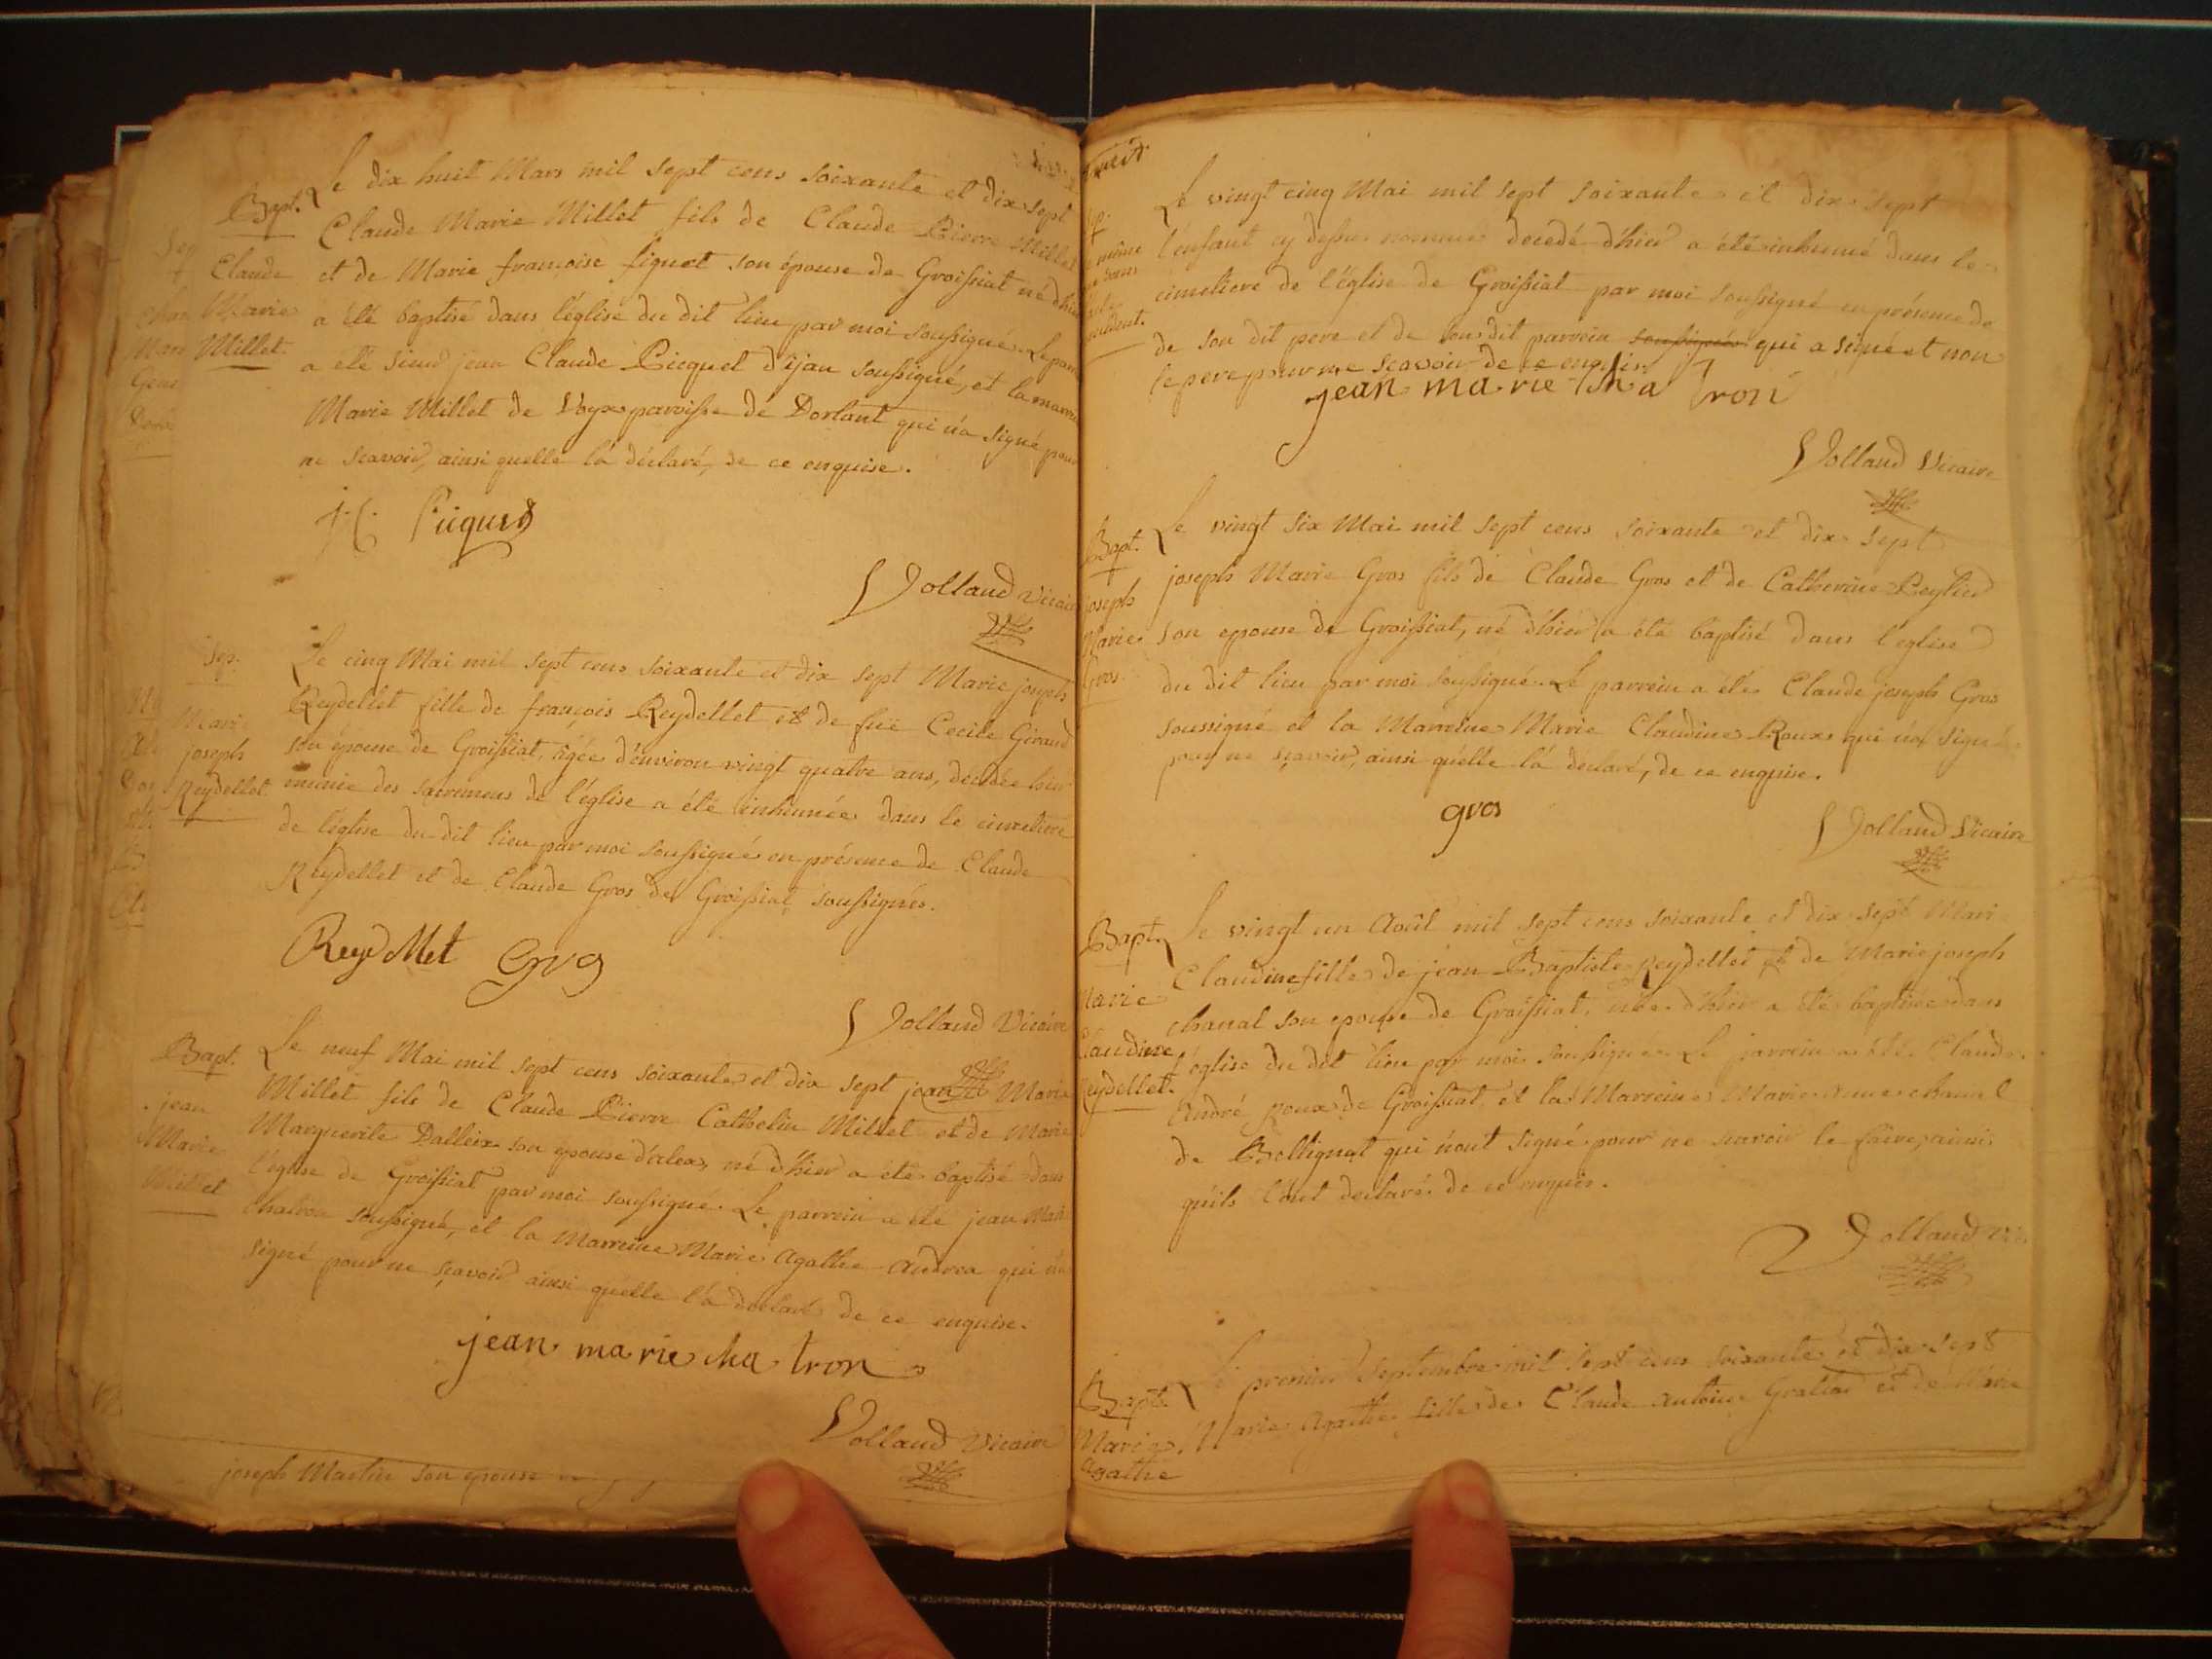 Bapt.
Claude
Marie
Millet.
Le dix huit Mars mil sept cens soixante et dix sept
Claude Marie Millet fils de Claude Pierre Millet
et de Marie françoise figuet son épouse de Groissiat né d'hier
a été baptisé dans l'église du dit lieu par moi soussigné. Le parrein
a été sieur jean Claude Picquet d'ijan soussigné, et la marreine
Marie Millet de Uoyx paroisse de Dortant qui n'a signé pour
ne sçavoir, ainsi quelle l'a déclaré, de ce enquise.
Picquet
Volland Vicaire
Sep.
Marie
joseph
Reydellet
Le cinq Mai mil sept cens soixante et dix sept Marie joseph
Reydellet fille de françois Reydellet et de füe Cecile Giraud
son épouse de Groissiat, agée d'environ vingt quatre ans, décédée hier
munie des sacremens de l'église a été inhumée dans le cimetiere
de l'église du dit lieu par moi soussigné en présence de Claude
Reydellet et de Claude Gros de Groissiat soussignés.
Reydellet Gros
Volland Vicaire
Bapt.
jean
Marie
Millet
Le neuf Mai mil sept cens soixante et dix sept jean Marie
Millet fils de Claude Pierre Cathelin Millet et de Marie
Marguerite Dalleix son epouse d'alex, né d'hier a été baptisé dans
l'église de Groissiat par moi soussigné. Le parrein a été jean Marie
Chatron soussigné, et la Marreine Marie Agathe Andrea qui n'a
signé pour ne sçavoir ainsi qu'elle l'a déclaré de ce enquise.
jean marie cha tron
Volland Vicaire
joseph Martin son epouse
Le vingt cinq Mai mil sept soixante et dix sept
l'enfant cy dessus nommé decedé d'hier a été inhumé dans le
cimetiere de l'église de Groissiat par moi soussigné en présence de
de son dit pere et de son dit parrein soussignés qui a signé et non
le pere pour ne scavoir de ce enquis.
jean marie cha tron
Volland Vicaire
Bapt.
joseph
Marie
Gros.
Le vingt six Mai mil sept cens soixante et dix sept
joseph Marie Gros fils de Claude Gros et de Catherine Peylier
son epouse de Groissiat, né d'hier a été baptisé dans l'église
du dit lieu par moi soussigné. Le parrein a été Claude joseph Gros
soussigné et la Marreine Marie Claudine Roux qui n'a signé
pour ne sçavoir, ainsi qu'elle l'a declaré, de ce enquise.
gros
Volland Vicaire
Bapt.
Marie
Claudine
Reydellet.
Le vingt un Août mil sept cens soixante et dix sept Marie
Claudine fille de jean Baptiste Reydellet et de Marie joseph
chanal son epouse de Groissiat, née d'hier a été baptisée dans
l'église du dit lieu par moi soussigné. Le parrein a été Claude
André roux de Groissiat, et la Marreine Marie Anne chanal
de Bellignat qui n'ont signé pour ne scavoir le faire, ainsi
qu'ils l'ont declaré de ce enquis.
Volland Vic
Bapt.
Marie
Agathe
Le premier Septembre mil sept cens soixante et dix sept
Marie Agathe fille de Claude Antoine Grattard et de Marie